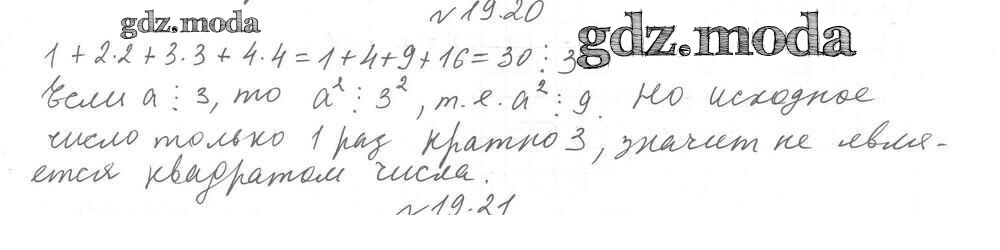 gdz.moda
№19.20
gdz.moda
1 + 2·2 + 3·3 + 4·4 = 1+4+9+16 = 30 ⋮ 3
Если a ⋮ 3, то a² ⋮ 3², т.е. a² ⋮ 9. Но исходное
число только 1 раз кратно 3, значит не явля-
ется квадратом числа.
№19.21